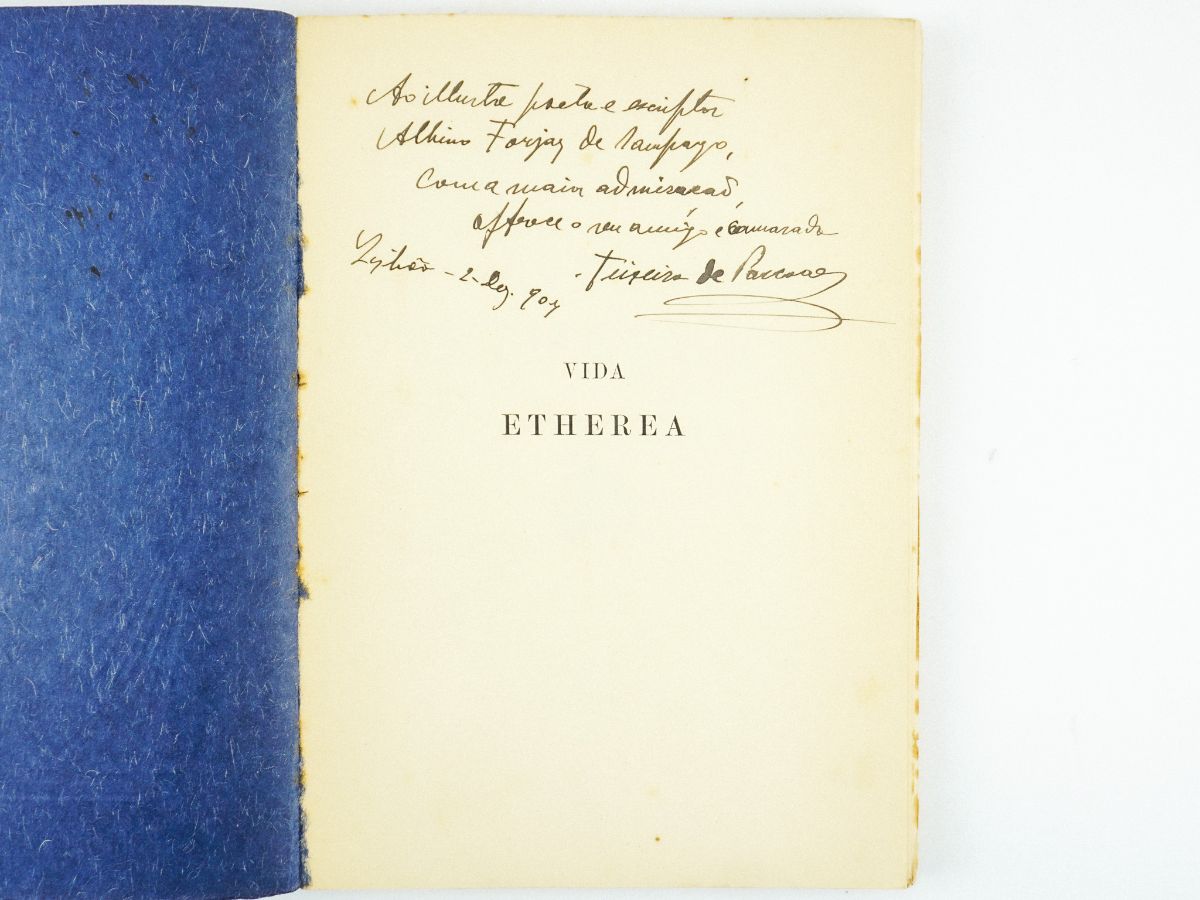 Ao illustre poeta e escriptor
Albino Forjaz de Sampayo,
com a maior admiração,
offrece o seu amigo e camarada
Teixeira de Pascoaes
Lisboa - 2 - Dez. 907
VIDA
ETHEREA